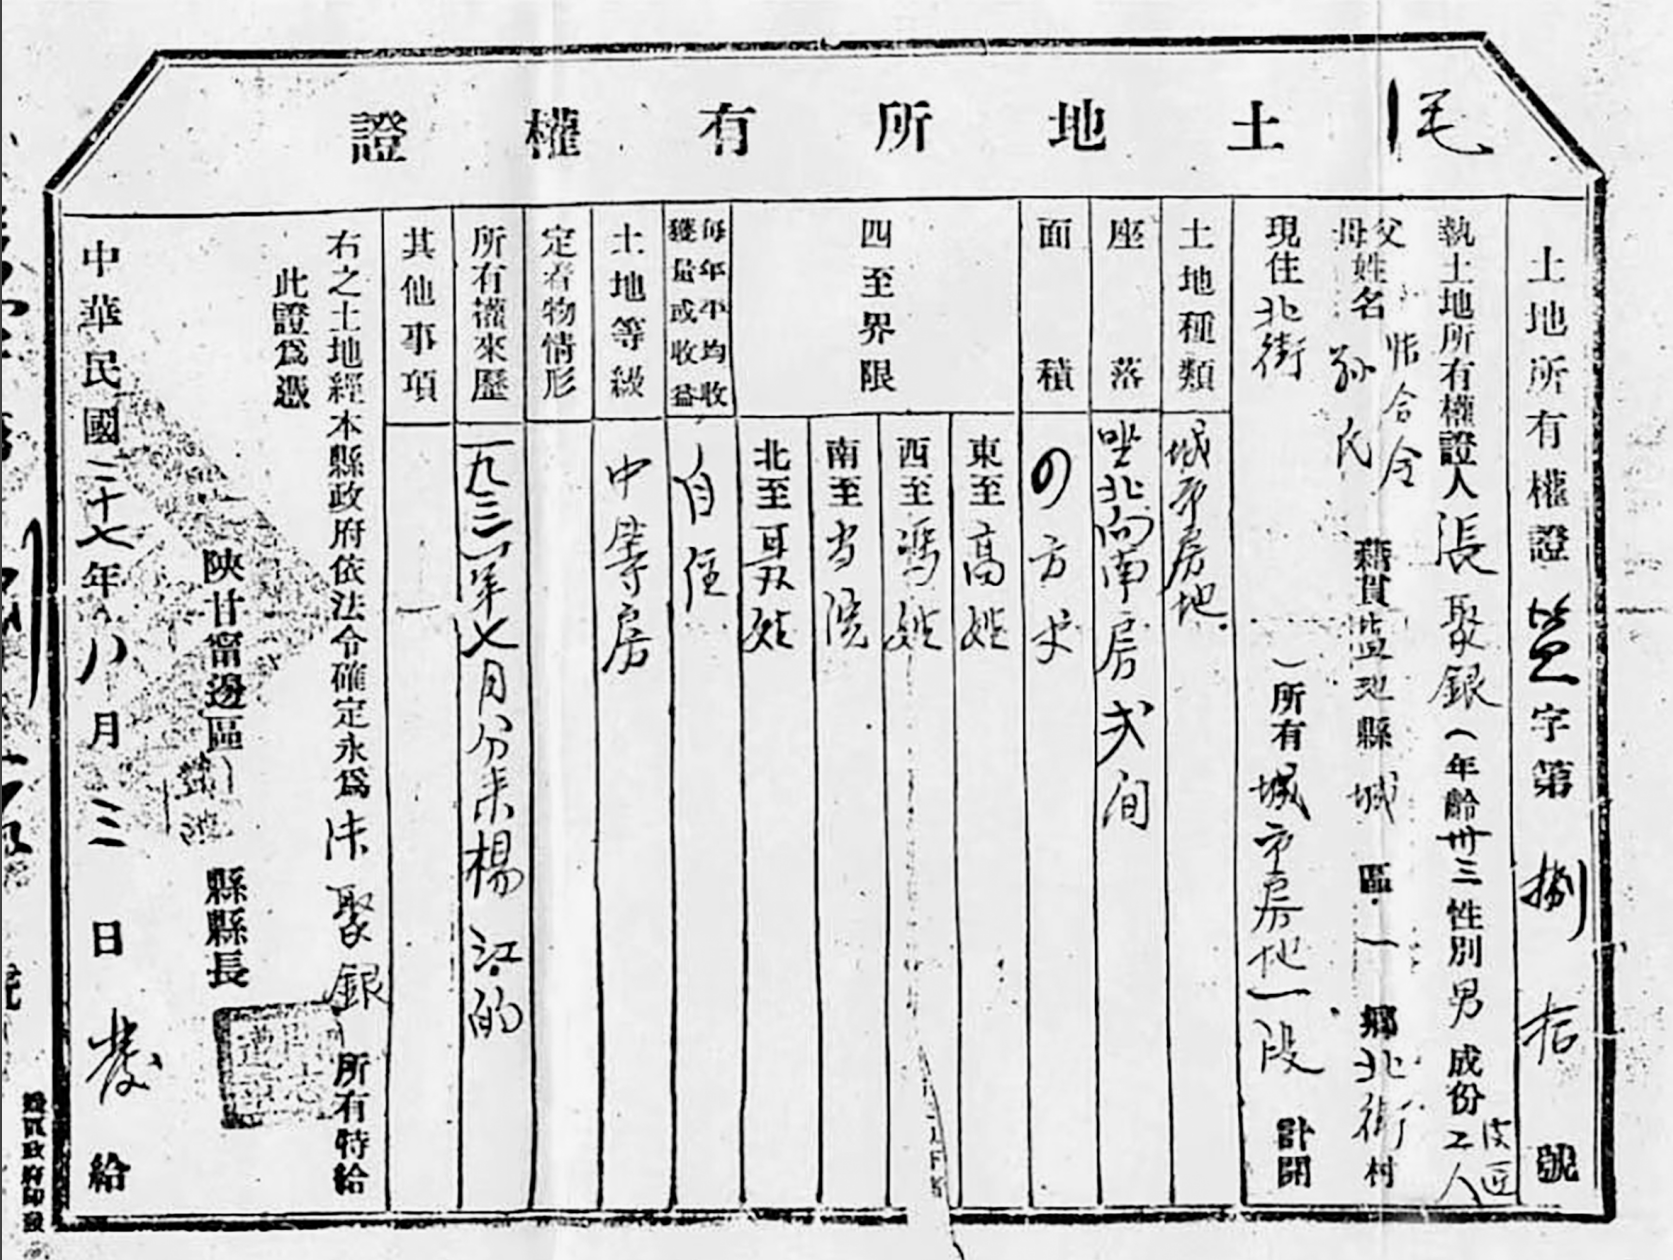 土地所有權證
毛
土地所有權證盐字第捌拾號
執土地所有權證人張聚銀（年齡卅三性別男成份工人
皮匠
父母姓名
張合令
孙氏
籍貫盐池縣城區一鄉北街村
現住北街
）所有城市房地一段計開
土地種類
城市房地
座落
坐北向南房弍间
面積
四至界限
東至高姓
西至馮姓
南至当院
北至聂姓
每年平均收獲量或收益
自住
土地等級
中等房
定着物情形
所有權來歷
一九三一年七月分来楊江的
其他事項
一
右之土地經本縣政府依法令確定永爲張聚銀所有特給
此證爲憑
陝甘寧邊區盐池縣縣長
中華民國三十七年八月三日發給